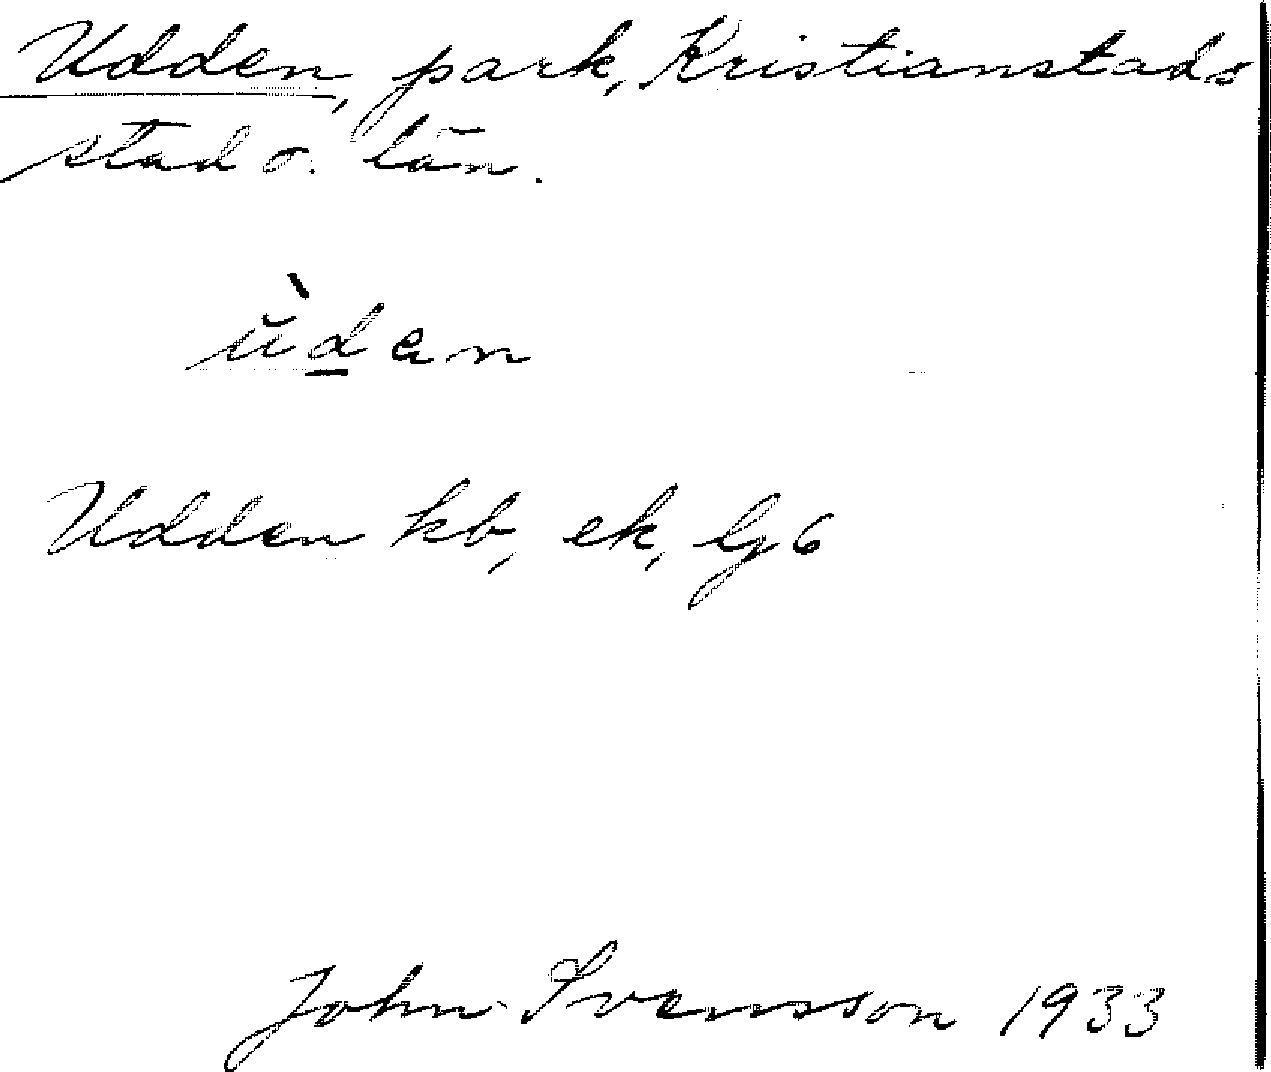 Udden, park, Kristianstads
stad o. län.
ùdan
Udden kb, ek, lg 6
John Svensson 1933